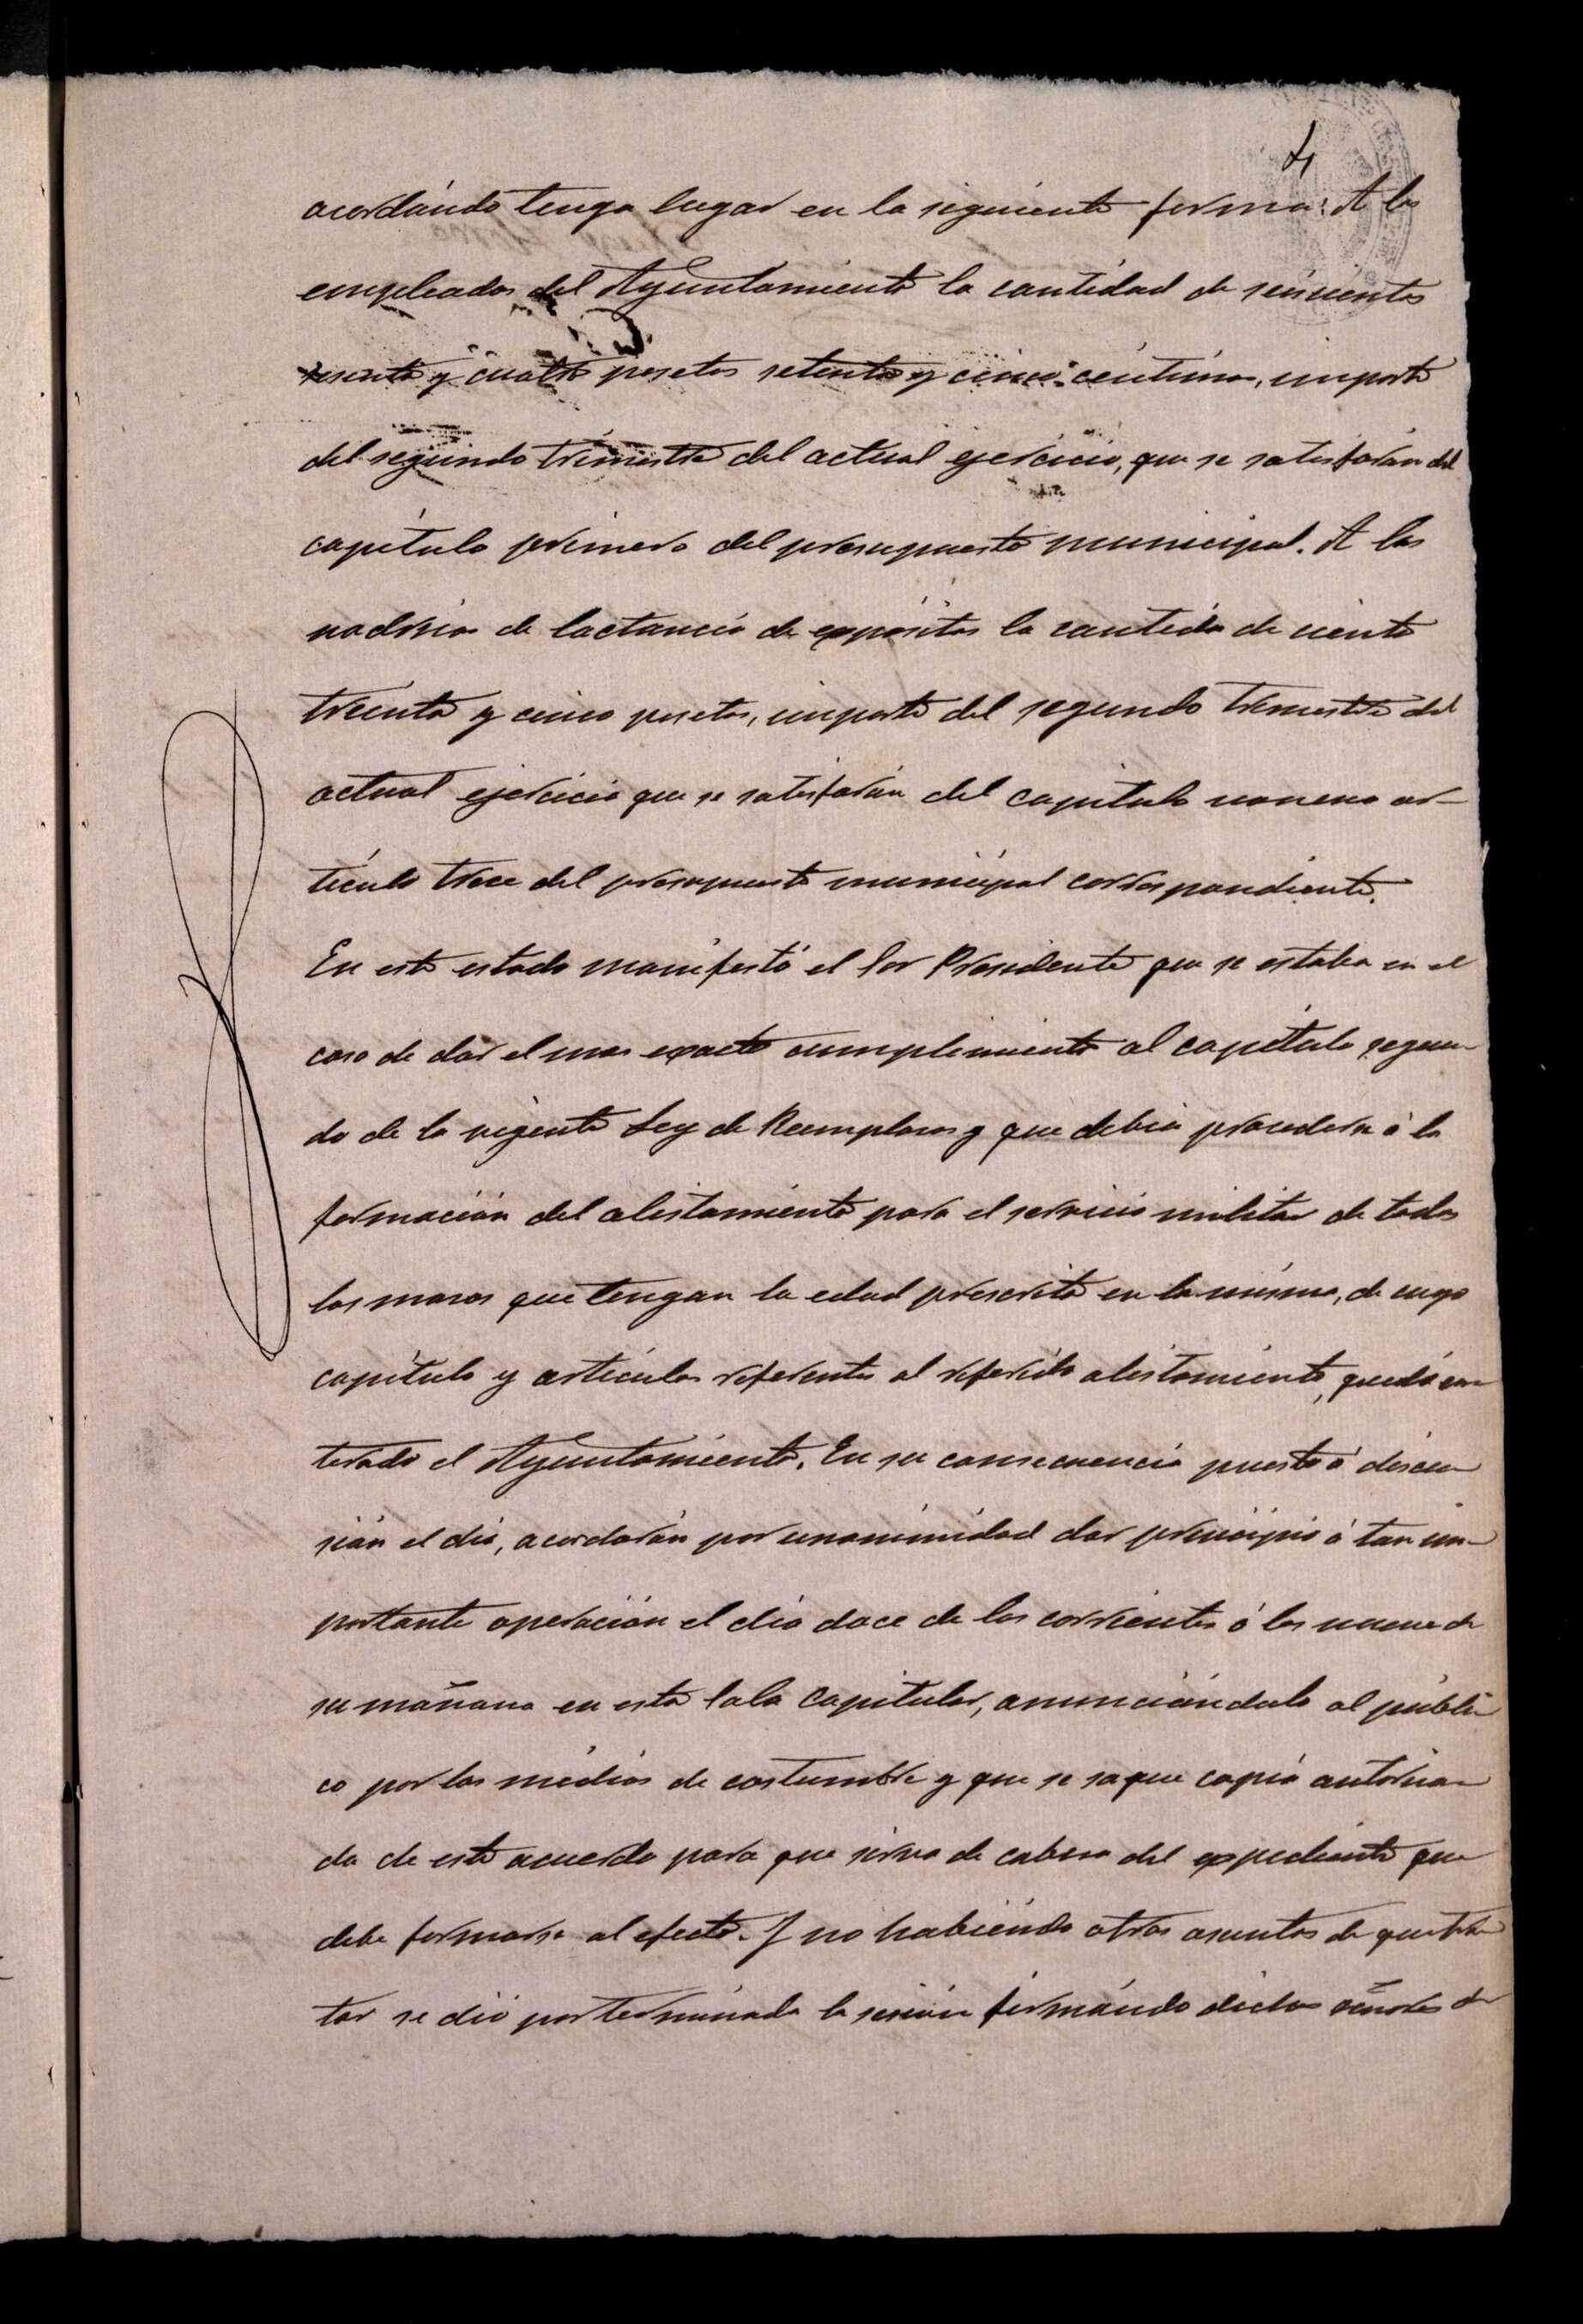 4
acordándo tenga lugar en la siguiente forma: A los
empleados del Ayuntamiento la cantidad de seiscientas
y cuatro pesetas setenta y cinco céntimos, importe
del segundo trimestre del actual ejercicio, que se satisfarán del
capítulo primero del presupuesto municipal. A las
nodrizas de lactancia de expósitos la cantida de ciento
treinta y cinco pesetas, importe del segundo trimestre del
actual ejercicio que se satisfarán del capitulo noveno ar-
tículo trece del presupuesto municipal correspondiente.
En este estado manifestó el Sor Presidente que se estaba en el
caso de dar el mas exacto cumplimiento al capítulo segun-
do de la vigente Ley de Reemplazos y que debia procederse á la
formación del alistamiento para el servicio militar de todos
los mozos que tengan la edad prescrita en la misma, de cuyo
capítulo y artículos referentes al referido alistamiento, quedó en-
terado el Ayuntamiento. En su consecuencia puesto á discu-
sión el dia, acordarón por unanimidad dar principio á tan im-
portante operación el dia doce de los corrientes á las nueve de
su mañana en esta Sala Capitular, anunciándolo al públi-
co por los medios de costumbre y que se saque copia autoriza-
da de este acuerdo para que sirva de cabeza del expediente que
debe formarse al efecto. Y no habiéndo otros asuntos de que tra-
tar se dió por terminada la sesión firmándo dichos señores de